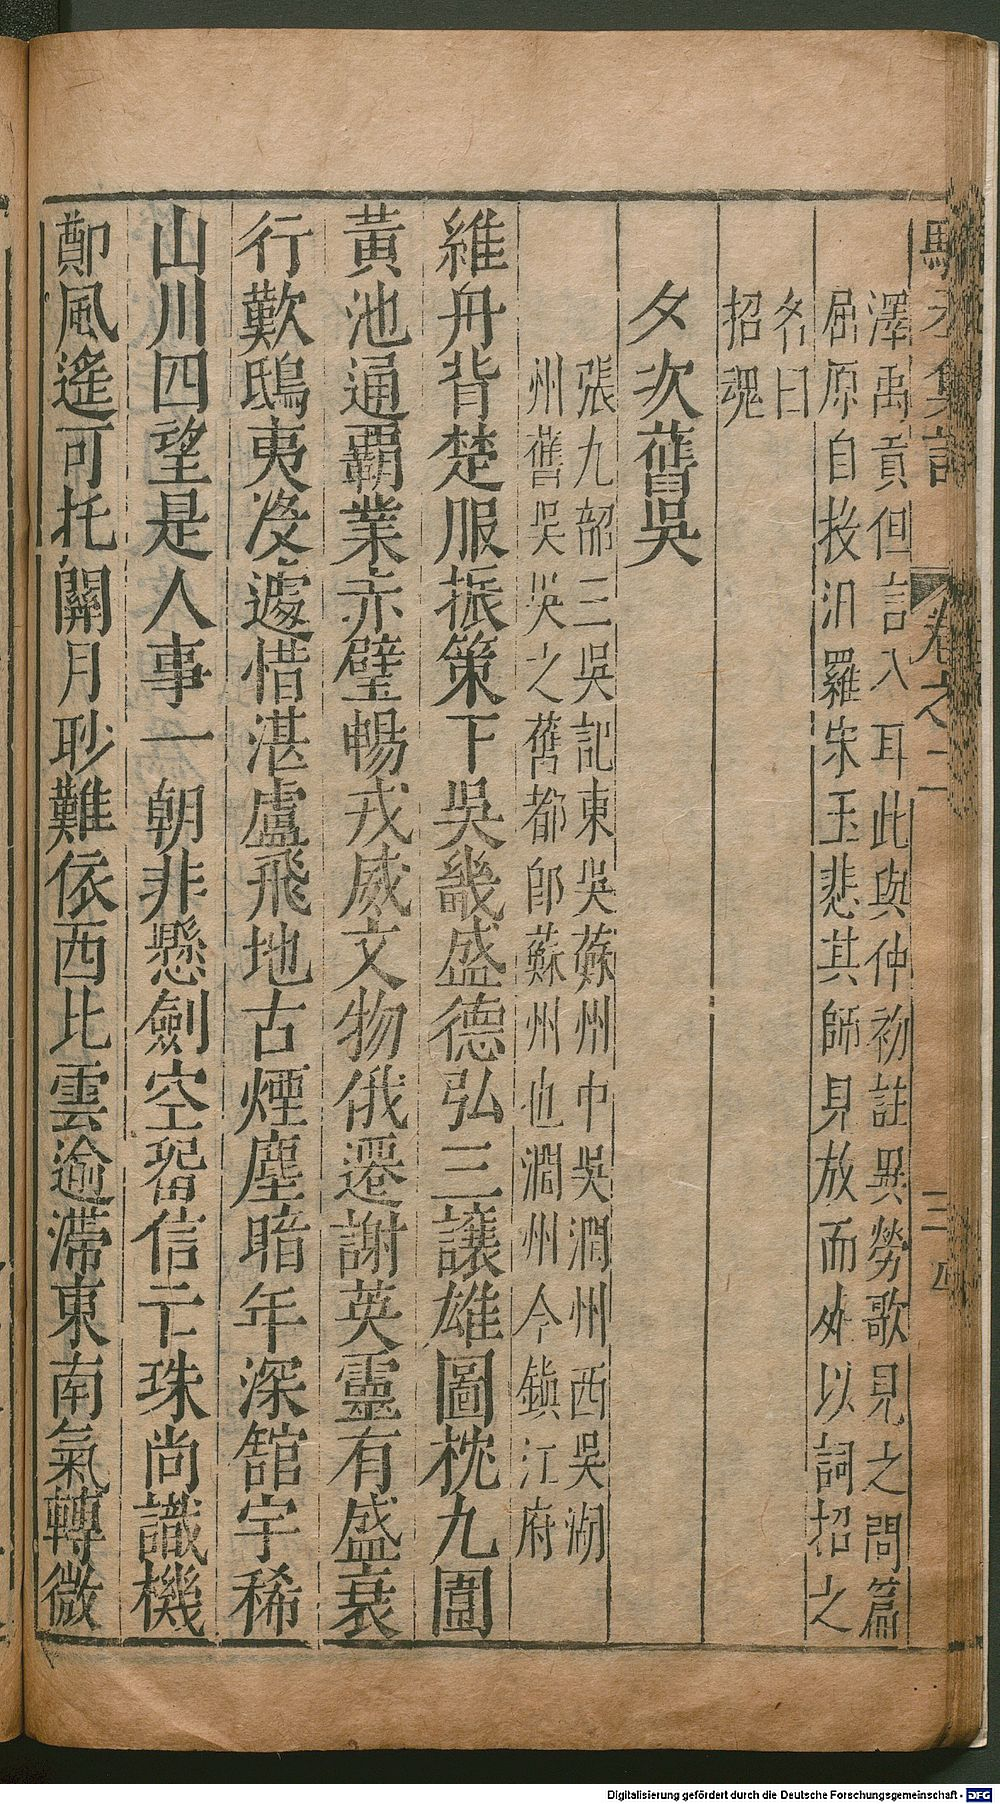 澤禹貢但言入耳此與仲初註異勞歌見之問篇
屈原自投汨羅宋玉悲其師見放而外以詞招之
名曰
招魂
夕次舊吳
張九韶三吳記東吳蘇州中吳潤州西吳湖
州舊吳吳之舊都即蘇州也潤州今鎮江府
維舟背楚服振策下吳畿盛德弘三讓雄圖枕九圍
黃池通霸業赤壁暢戎威文物俄遷謝英靈有盛衰
行歎鴟夷沒遽惜湛盧飛地古煙塵暗年深館宇稀
山川四望是人事一朝非懸劍空畱信亡珠尚識機
鄭風遙可托關月眇難依西北雲逾滯東南氣轉微
Digitalisierung gefördert durch die Deutsche Forschungsgemeinschaft - DFG